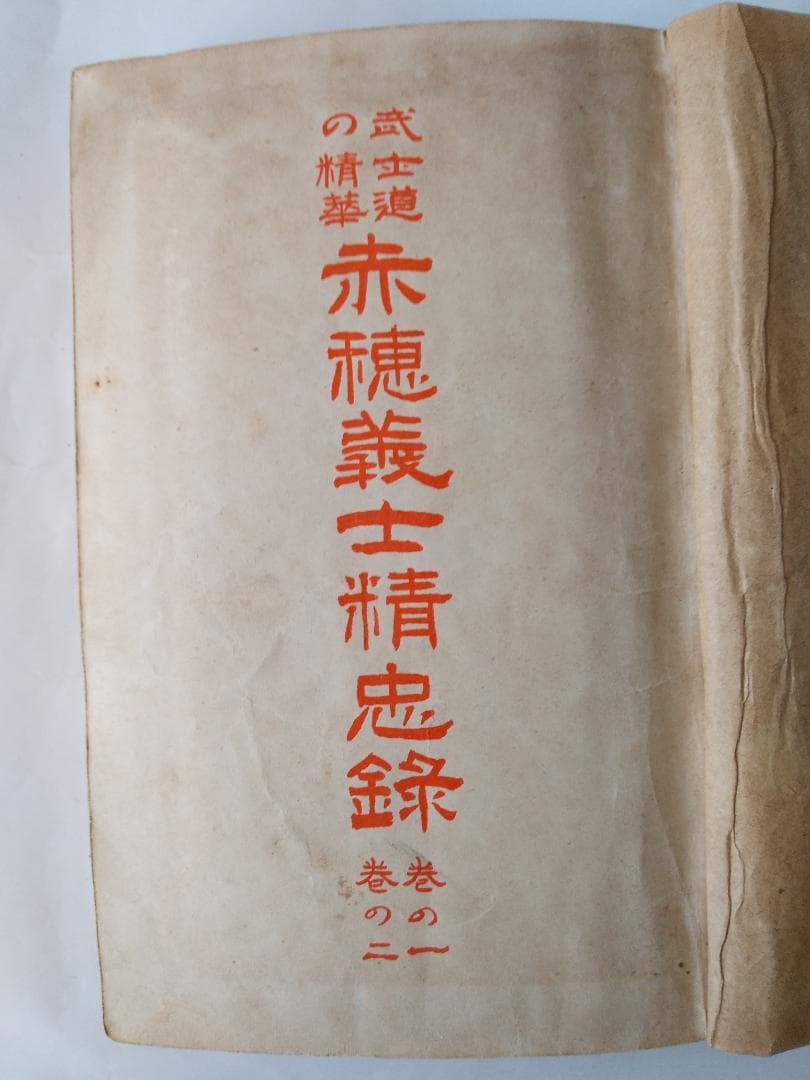 武士道
の精華
赤穂義士精忠錄
巻の一
巻の二